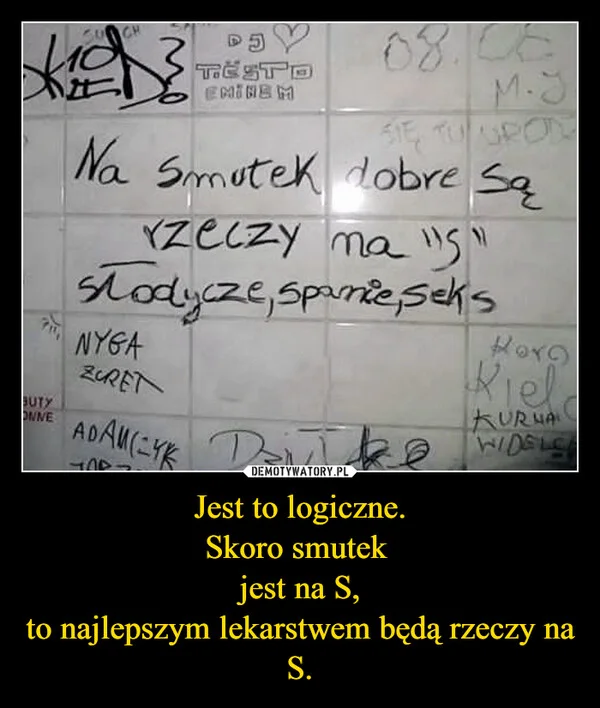 DJ
TIËSTO
EMINEM
08.
M.J
SIĘ TU
Na smutek dobre są
rzeczy na "s"
słodycze, spanie, seks
NYGA
ŻCRET
Koro
Kiel
KURWA
WIDELC
BUTY
ONNE
ADAMCZYK
DEMOTYWATORY.PL
Jest to logiczne.
Skoro smutek
jest na S,
to najlepszym lekarstwem będą rzeczy na
S.